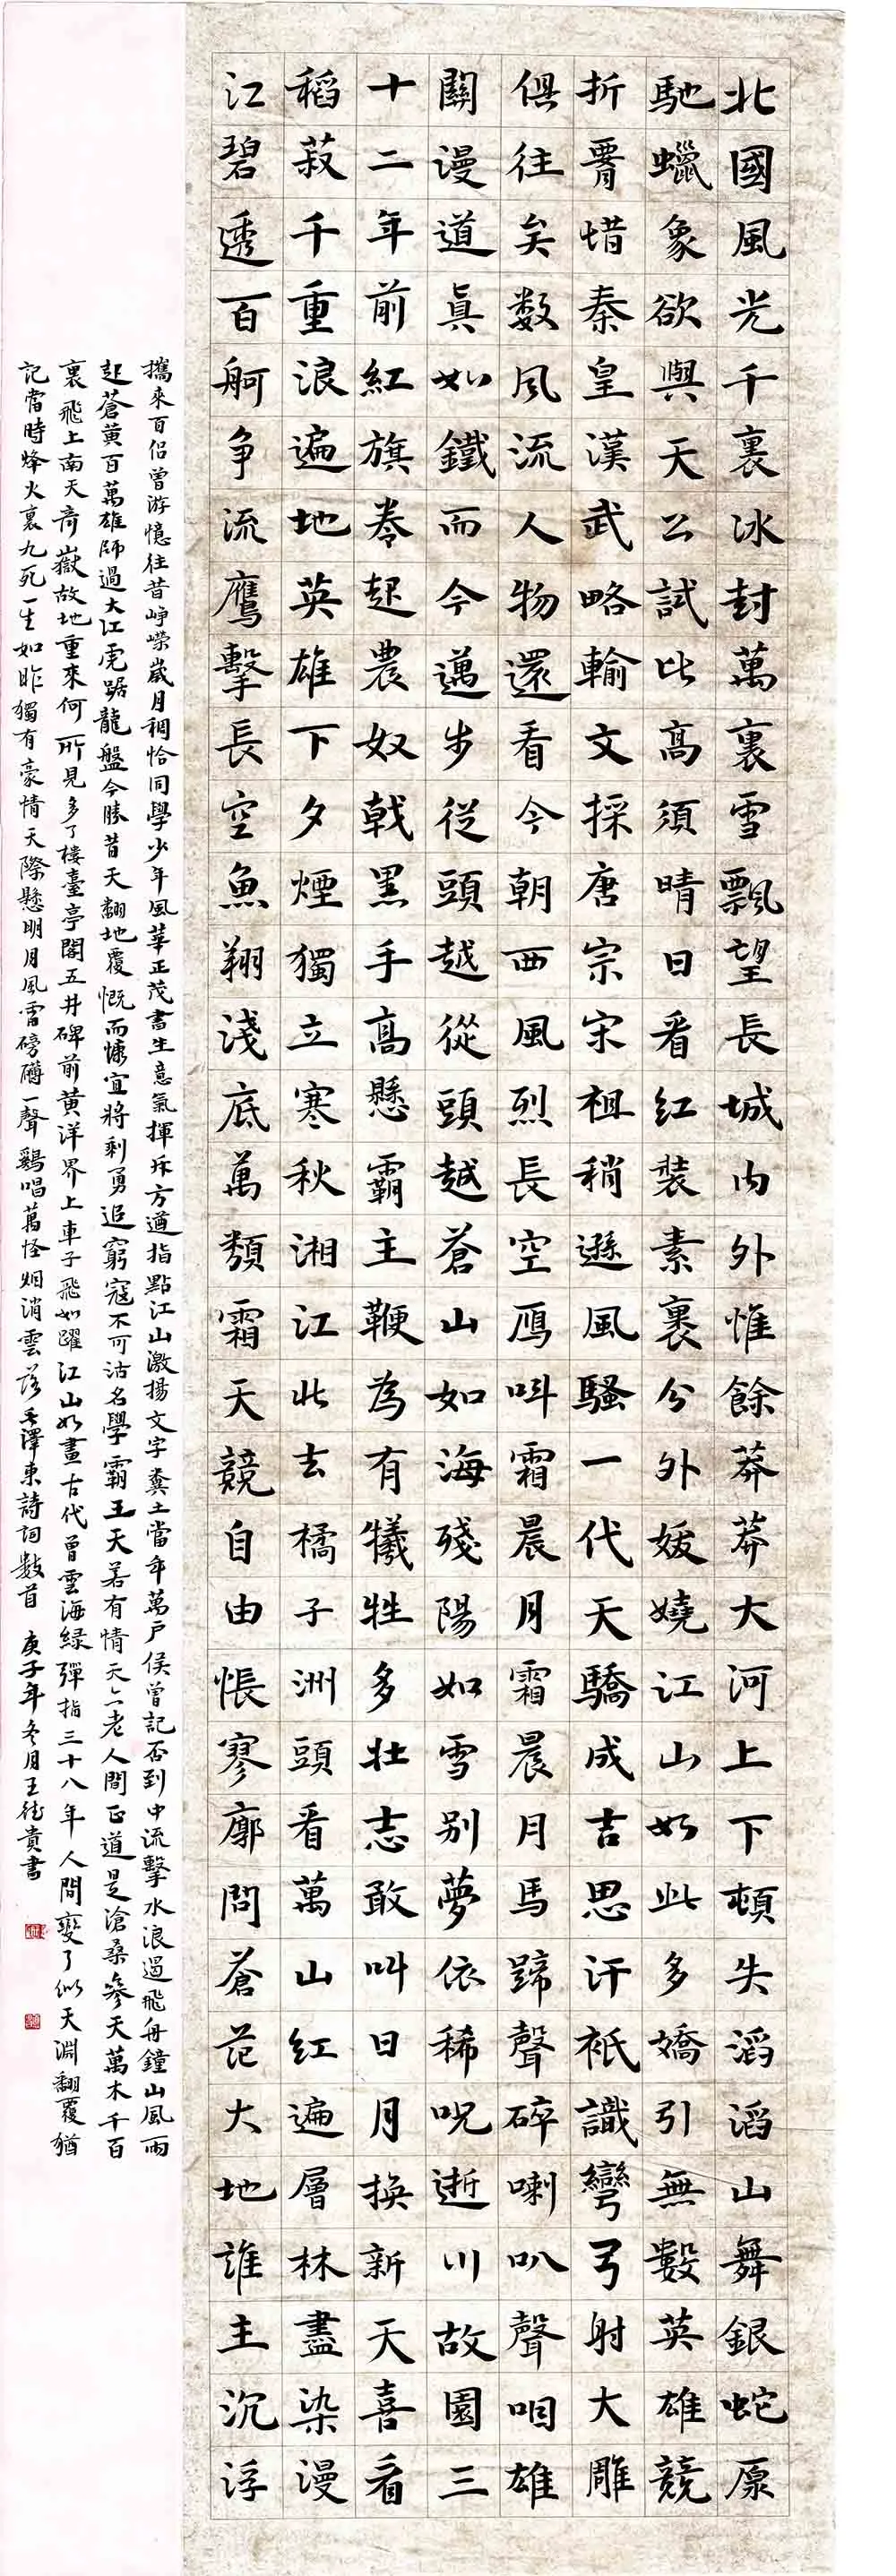 北國風光千裏冰封萬裏雪飄望長城內外惟餘莽莽大河上下頓失滔滔山舞銀蛇原
馳蠟象欲與天公試比高須晴日看紅裝素裹分外妖嬈江山如此多嬌引無數英雄競
折腰惜秦皇漢武略輸文採唐宗宋祖稍遜風騷一代天驕成吉思汗祇識彎弓射大雕
俱往矣数風流人物還看今朝西風烈長空鴈叫霜晨月霜晨月馬蹄聲碎喇叭聲咽雄
關漫道真如鐵而今邁步從頭越從頭越蒼山如海殘陽如雪別夢依稀呪逝川故園三
十二年前紅旗捲起農奴戟黑手高懸霸主鞭為有犧牲多壯志敢叫日月換新天喜看
稻菽千重浪遍地英雄下夕煙獨立寒秋湘江北去橘子洲頭看萬山紅遍層林盡染漫
江碧透百舸爭流鷹擊長空魚翔淺底萬類霜天競自由悵寥廓問蒼茫大地誰主沉浮
攜來百侶曾游憶往昔崢嶸歲月稠恰同學少年風華正茂書生意氣揮斥方遒指點江山激揚文字糞土當年萬戶侯曾記否到中流擊水浪遏飛舟鐘山風雨
起蒼黃百萬雄師過大江虎踞龍盤今勝昔天翻地覆慨而慷宜將剩勇追窮寇不可沽名學霸王天若有情天亦老人間正道是滄桑參天萬木千百
裏飛上南天奇嶽故地重來何所見多了樓臺亭閣五井碑前黃洋界上車子飛如躍江山如畫古代曾雲海綠彈指三十八年人間變了似天淵翻覆猶
記當時烽火裏九死一生如昨獨有豪情天際懸明月風雷磅礴一聲鷄唱萬怪烟消雲落毛澤東詩詞數首 庚子年冬月王德貴書